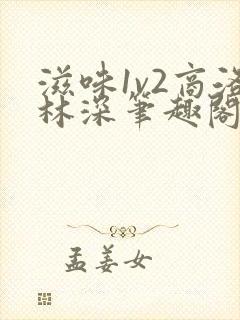 滋味1v2高洛
林深筆趣閣
孟姜女